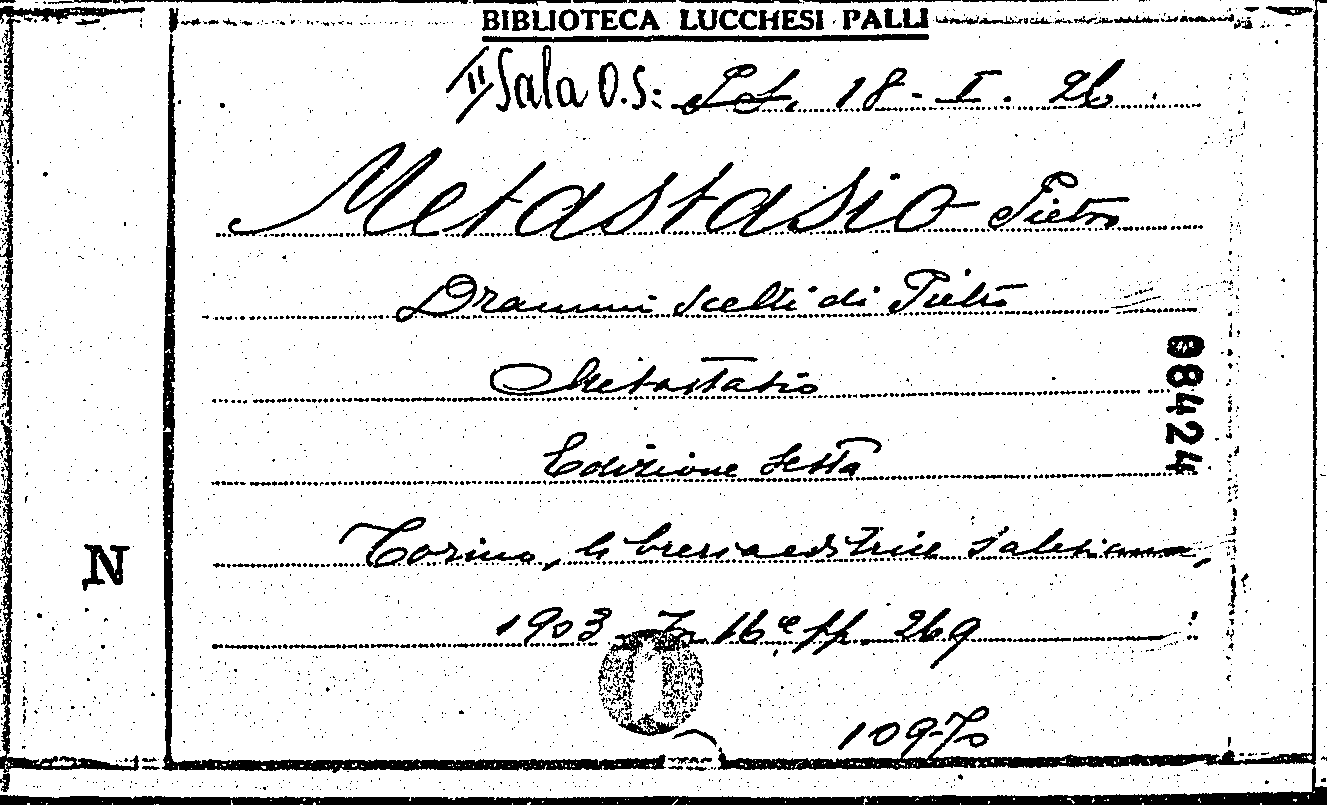 BIBLIOTECA LUCCHESI PALLI
II Sala O.S: 18-I. 26
Metastasio Pietro
Drammi scelti di Pietro
Metastasio
Edizione sesta
Torino, libreria editrice salesiana,
1903 In 16º pp. 269
N
08424